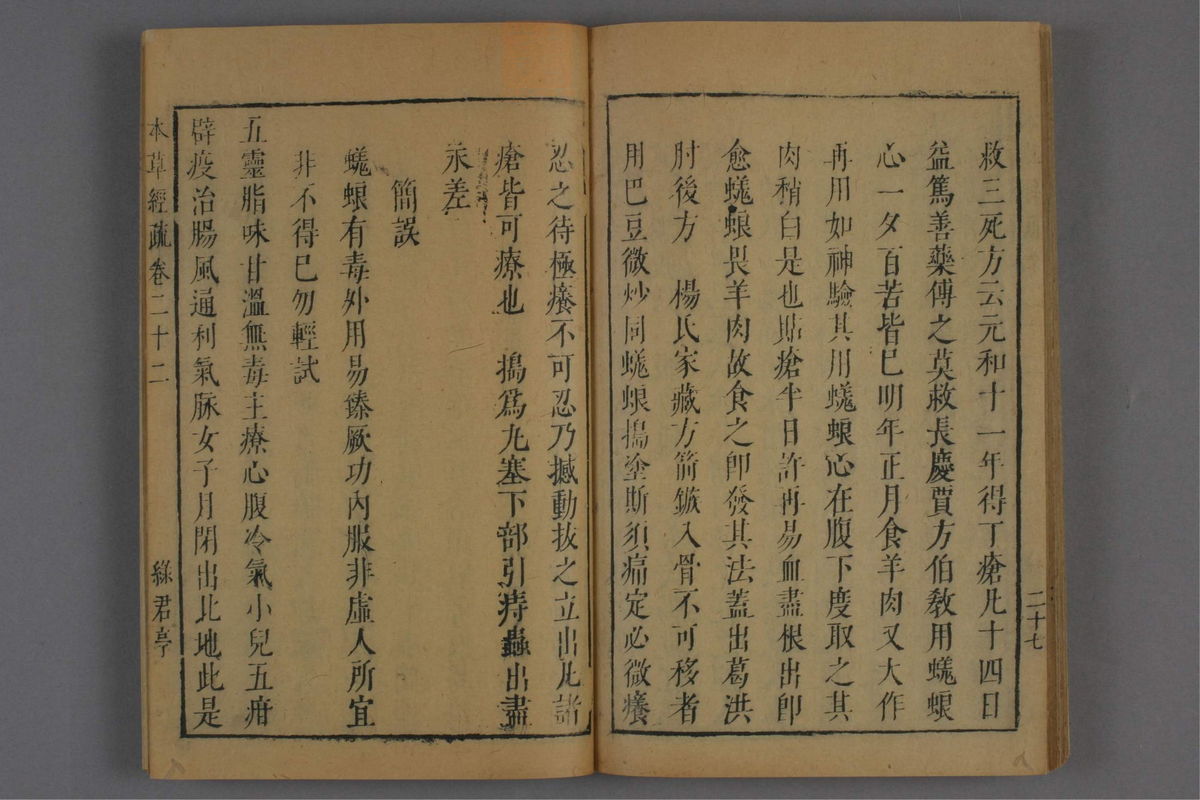 二十七
救三死方云元和十一年得丁瘡凡十四日
益篤善藥傅之莫救長慶賈方伯教用蜣蜋
心一夕百苦皆已明年正月食羊肉又大作
再用如神驗其用蜣蜋心在腹下度取之其
肉稍白是也貼瘡半日許再易血盡根出卽
愈蜣蜋畏羊肉故食之卽發其法蓋出葛洪
肘後方　楊氏家藏方箭鏃入骨不可移者
用巴豆微炒同蜣蜋搗塗斯須痛定必微癢
忍之待極癢不可忍乃撼動拔之立出凡諸
瘡皆可療也　搗爲丸塞下部引痔蟲出盡
永差
簡誤
蜣蜋有毒外用易臻厥功內服非虛人所宜
非不得已勿輕試
五靈脂味甘溫無毒主療心腹冷氣小兒五疳
辟疫治腸風通利氣脉女子月閉出北地此是
本草經疏卷二十二
綠君亭